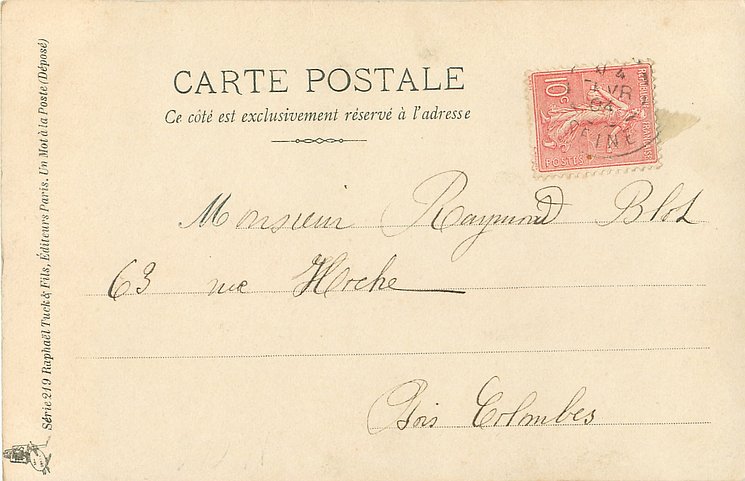 CARTE POSTALE
Ce côté est exclusivement réservé à l'adresse
Monsieur Raymond Blot
63 rue Hoche
Bois Colombes
Série 219 Raphaël Tuck & Fils, Éditeurs Paris. Un Mot à la Poste (Déposé)
10
POSTES
4
AVR
04
SEINE